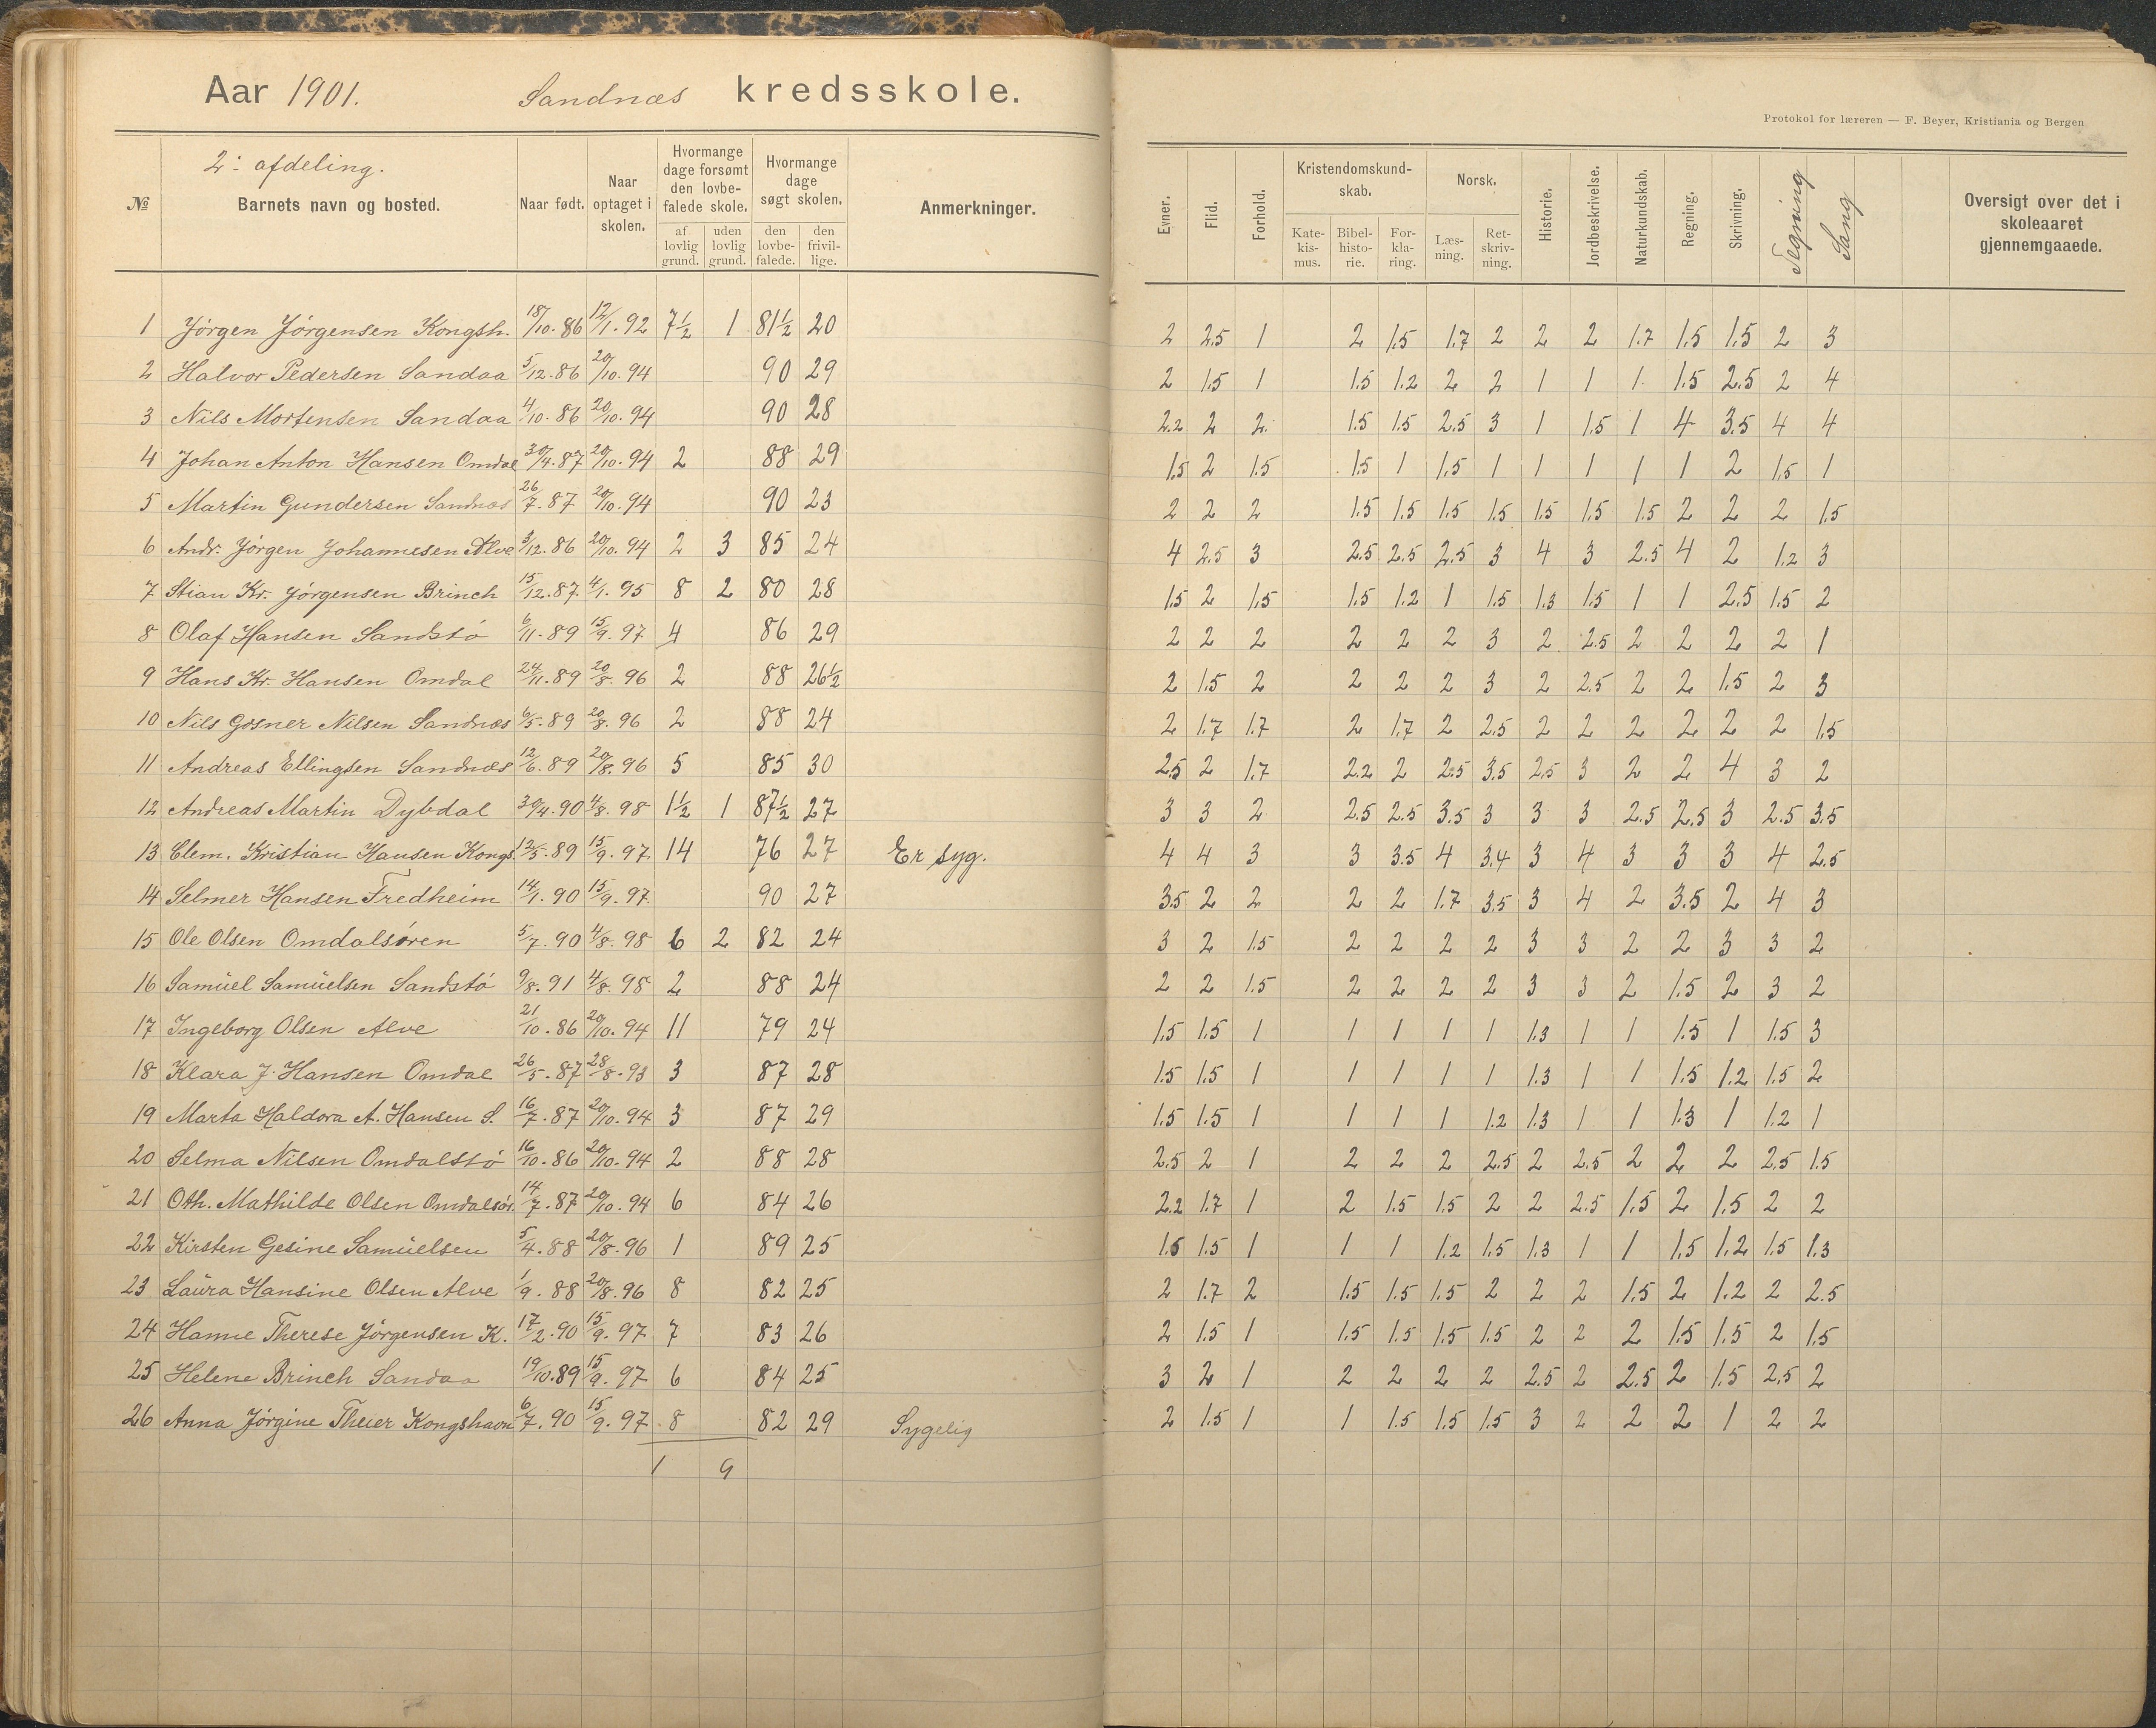 Aar 1901. Sandnæs kredsskole.
Protokol for læreren — F. Beyer, Kristiania og Bergen
№ 2: afdeling. Barnets navn og bosted. Naar født. Naar optaget i skolen. Hvormange dage forsømt den lovbefalede skole. af lovlig grund. uden lovlig grund. Hvormange dage søgt skolen. den lovbefalede. den frivillige. Anmerkninger. Evner. Flid. Forhold. Kristendomskundskab. Katekismus. Bibelhistorie. Forklaring. Norsk. Læsning. Retskrivning. Historie. Jordbeskrivelse. Naturkundskab. Regning. Skrivning. Tegning Sang Oversigt over det i skoleaaret gjennemgaaede.
1 Jörgen Jörgensen Kongsh. 18/10.86 12/1.92 7½ 1 81½ 20 2 2.5 1 2 1.5 1.7 2 2 2 1.7 1.5 1.5 2 3
2 Halvor Pedersen Sandaa 5/12.86 20/10.94 90 29 2 1.5 1 1.5 1.2 2 2 1 1 1 1.5 2.5 2 4
3 Nils Mortensen Sandaa 4/10.86 20/10.94 90 28 2.2 2 2 1.5 1.5 2.5 3 1 1.5 1 4 3.5 4 4
4 Johan Anton Hansen Omdal 30/4.87 20/10.94 2 88 29 1.5 2 1.5 1.5 1 1.5 1 1 1 1 1 2 1.5 1
5 Martin Gundersen Sandnæs 26/7.87 20/10.94 90 23 2 2 2 1.5 1.5 1.5 1.5 1.5 1.5 1.5 2 2 2 1.5
6 Andr. Jörgen Johannesen Alve 3/12.86 20/10.94 2 3 85 24 4 2.5 3 2.5 2.5 2.5 3 4 3 2.5 4 2 1.2 3
7 Stian Kr. Jörgensen Brinch 15/12.87 4/1.95 8 2 80 28 1.5 2 1.5 1.5 1.2 1 1.5 1.3 1.5 1 1 2.5 1.5 2
8 Olaf Hansen Sandstö 6/11.89 15/9.97 4 86 29 2 2 2 2 2 2 3 2 2.5 2 2 2 2 1
9 Hans Kr. Hansen Omdal 24/11.89 20/8.96 2 88 26½ 2 1.5 2 2 2 2 3 2 2.5 2 2 1.5 2 3
10 Nils Gosner Nilsen Sandnæs 6/5.89 20/8.96 2 88 24 2 1.7 1.7 2 1.7 2 2.5 2 2 2 2 2 2 1.5
11 Andreas Ellingsen Sandnæs 12/6.89 20/8.96 5 85 30 2.5 2 1.7 2.2 2 2.5 3.5 2.5 3 2 2 4 3 2
12 Andreas Martin Dybdal 30/4.90 4/8.98 1½ 1 87½ 27 3 3 2 2.5 2.5 3.5 3 3 3 2.5 2.5 3 2.5 3.5
13 Clem. Kristian Hansen Kongs. 12/5.89 15/9.97 14 76 27 Er syg. 4 4 3 3 3.5 4 3.4 3 4 3 3 3 4 2.5
14 Selmer Hansen Fredheim 14/1.90 15/9.97 90 27 3.5 2 2 2 2 1.7 3.5 3 4 2 3.5 2 4 3
15 Ole Olsen Omdalsören 5/7.90 4/8.98 6 2 82 24 3 2 1.5 2 2 2 2 3 3 2 2 3 3 2
16 Samüel Samüelsen Sandstö 9/8.91 4/8.98 2 88 24 2 2 1.5 2 2 2 2 3 3 2 1.5 2 3 2
17 Ingeborg Olsen Alve 21/10.86 20/10.94 11 79 24 1.5 1.5 1 1 1 1 1 1.3 1 1 1.5 1 1.5 3
18 Klara J. Hansen Omdal 26/5.87 28/8.93 3 87 28 1.5 1.5 1 1 1 1 1 1.3 1 1 1.5 1.2 1.5 2
19 Marta Haldora A. Hansen S. 16/7.87 20/10.94 3 87 29 1.5 1.5 1 1 1 1 1.2 1.3 1 1 1.3 1 1.2 1
20 Selma Nilsen Omdalstö 16/10.86 20/10.94 2 88 28 2.5 2 1 2 2 2 2.5 2 2.5 2 2 2 2.5 1.5
21 Oth. Mathilde Olsen Omdalsör. 14/7.87 20/10.94 6 84 26 2.2 1.7 1 2 1.5 1.5 2 2 2.5 1.5 2 1.5 2 2
22 Kirsten Gesine Samüelsen 5/4.88 20/8.96 1 89 25 1.5 1.5 1 1 1 1.2 1.5 1.3 1 1 1.5 1.2 1.5 1.3
23 Laüra Hansine Olsen Alve 1/9.88 20/8.96 8 82 25 2 1.7 2 1.5 1.5 1.5 2 2 2 1.5 2 1.2 2 2.5
24 Hanne Therese Jörgensen K. 17/2.90 15/9.97 7 83 26 2 1.5 1 1.5 1.5 1.5 1.5 2 2 2 1.5 1.5 2 1.5
25 Helene Brinch Sandaa 19/10.89 15/9.97 6 84 25 3 2 1 2 2 2 2 2.5 2 2.5 2 1.5 2.5 2
26 Anna Jörgine Theier Kongshavn 6/7.90 15/9.97 8 82 29 Sygelig 2 1.5 1 1 1.5 1.5 1.5 3 2 2 2 1 2 2
1 9